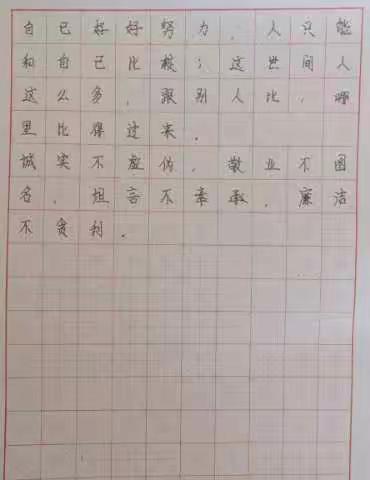 自己好好努力，人只能
和自己比较；这世间人
这么多，跟别人比，哪
里比得过来。
诚实不虚伪，敬业不图
名，坦言不奉承，廉洁
不贪利。